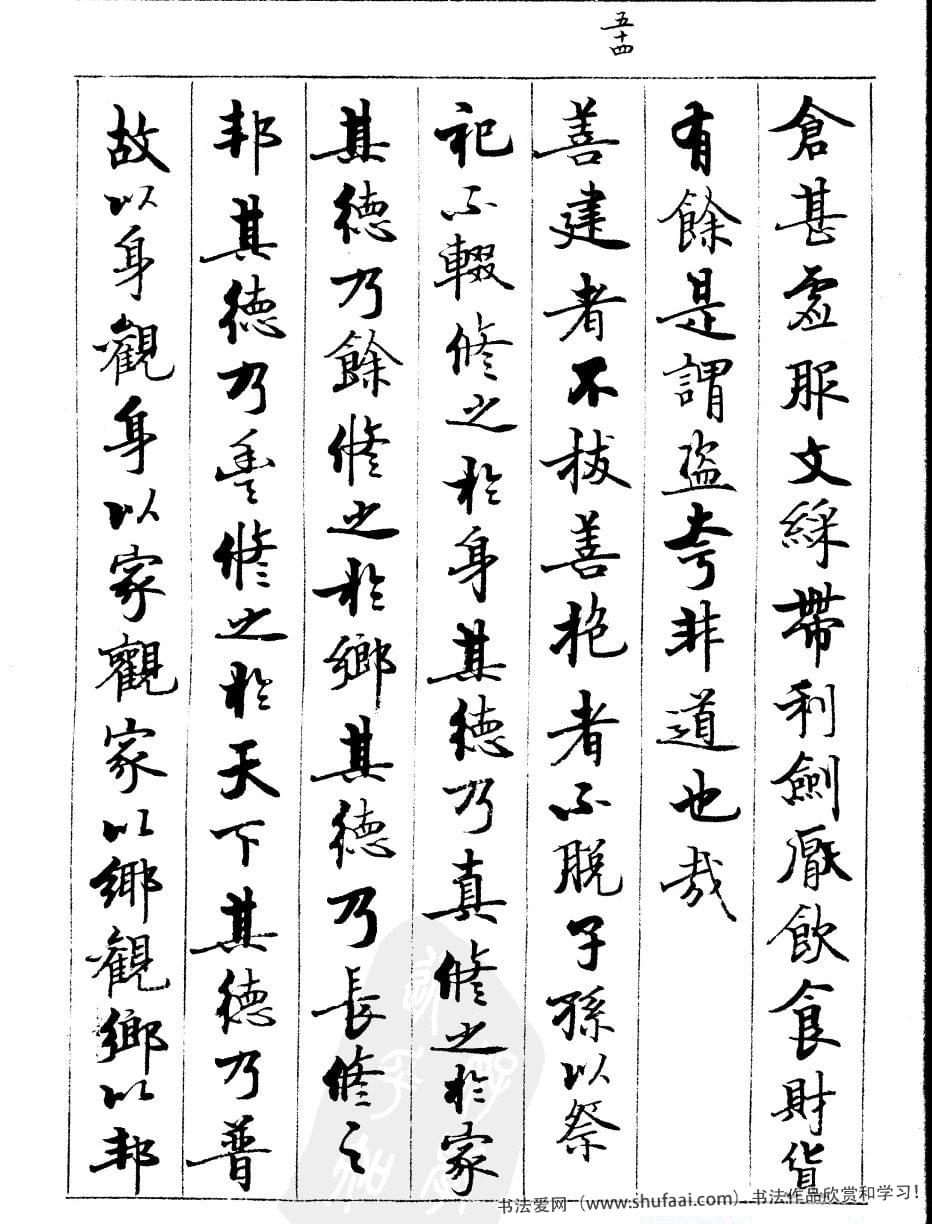 五十四
倉甚虛服文綵帶利劍厭飲食財貨
有餘是謂盜夸非道也哉
善建者不拔善抱者不脫子孫以祭
祀不輟修之於身其德乃真修之於家
其德乃餘修之於鄉其德乃長修之
邦其德乃豐修之於天下其德乃普
故以身觀身以家觀家以鄉觀鄉以邦
书法爱网（www.shufaai.com）书法作品欣赏和学习！